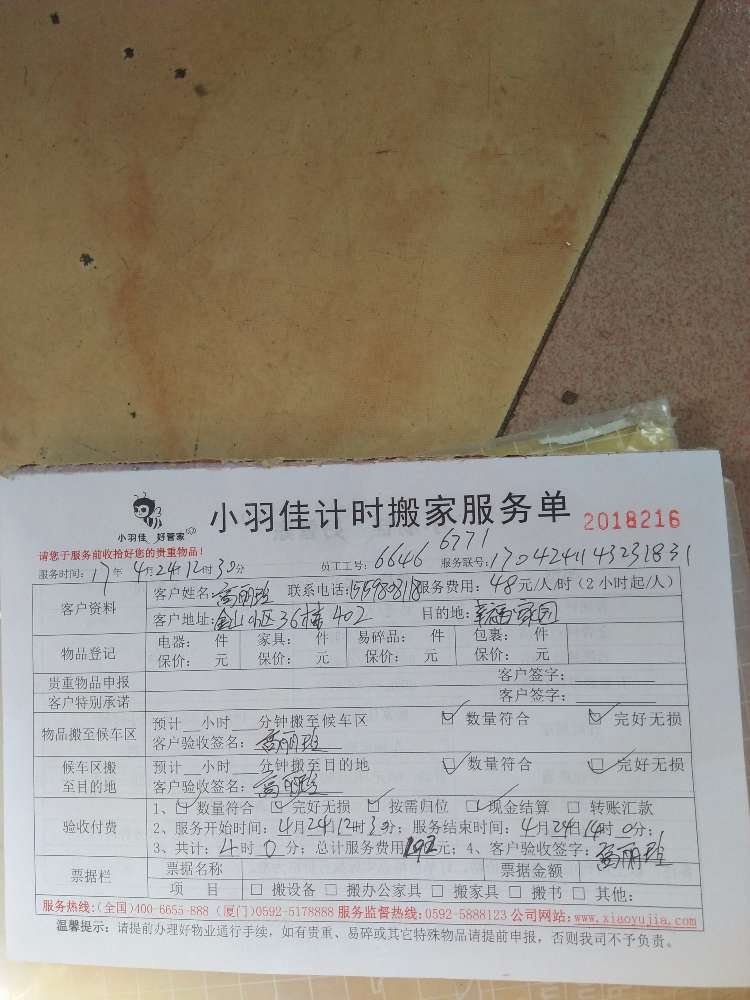 小羽佳 好管家
小羽佳计时搬家服务单 2018216
请您于服务前收拾好您的贵重物品!
6771
服务时间: 17年 4月24日12时30分 员工工号: 6646 服务联号: 1704241143231831
客户资料 客户姓名: 高丽玲 联系电话: 服务费用: 48元/人/时 (2小时起/人)
客户地址: 金山小区36栋402 目的地: 幸福家园
物品登记 电器: 件 家具: 件 易碎品: 件 包裹: 件
保价: 元 保价: 元 保价: 元 保价: 元
贵重物品申报 客户签字:
客户特别承诺 客户签字:
物品搬至候车区 预计__小时__分钟搬至候车区 ☑ 数量符合 ☑ 完好无损
客户验收签名: 高丽玲
候车区搬至目的地 预计__小时__分钟搬至目的地 ☑ 数量符合 ☑ 完好无损
客户验收签名: 高丽玲
验收付费 1、☑ 数量符合 ☑ 完好无损 ☑ 按需归位 ☑ 现金结算 □ 转账汇款
2、服务开始时间: 4月24日12时30分; 服务结束时间: 4月24日14时0分;
3、共计: 4时0分; 总计服务费用192元; 4、客户验收签字: 高丽玲
票据栏 票据名称 票据金额
项 目 □ 搬设备 □ 搬办公家具 □ 搬家具 □ 搬书 □ 其他:
服务热线:(全国)400-6655-888 (厦门)0592-5178888 服务监督热线:0592-5888123 公司网站:www.xiaoyujia.com
温馨提示: 请提前办理好物业通行手续, 如有贵重、易碎或其它特殊物品请提前申报, 否则我司不予负责。